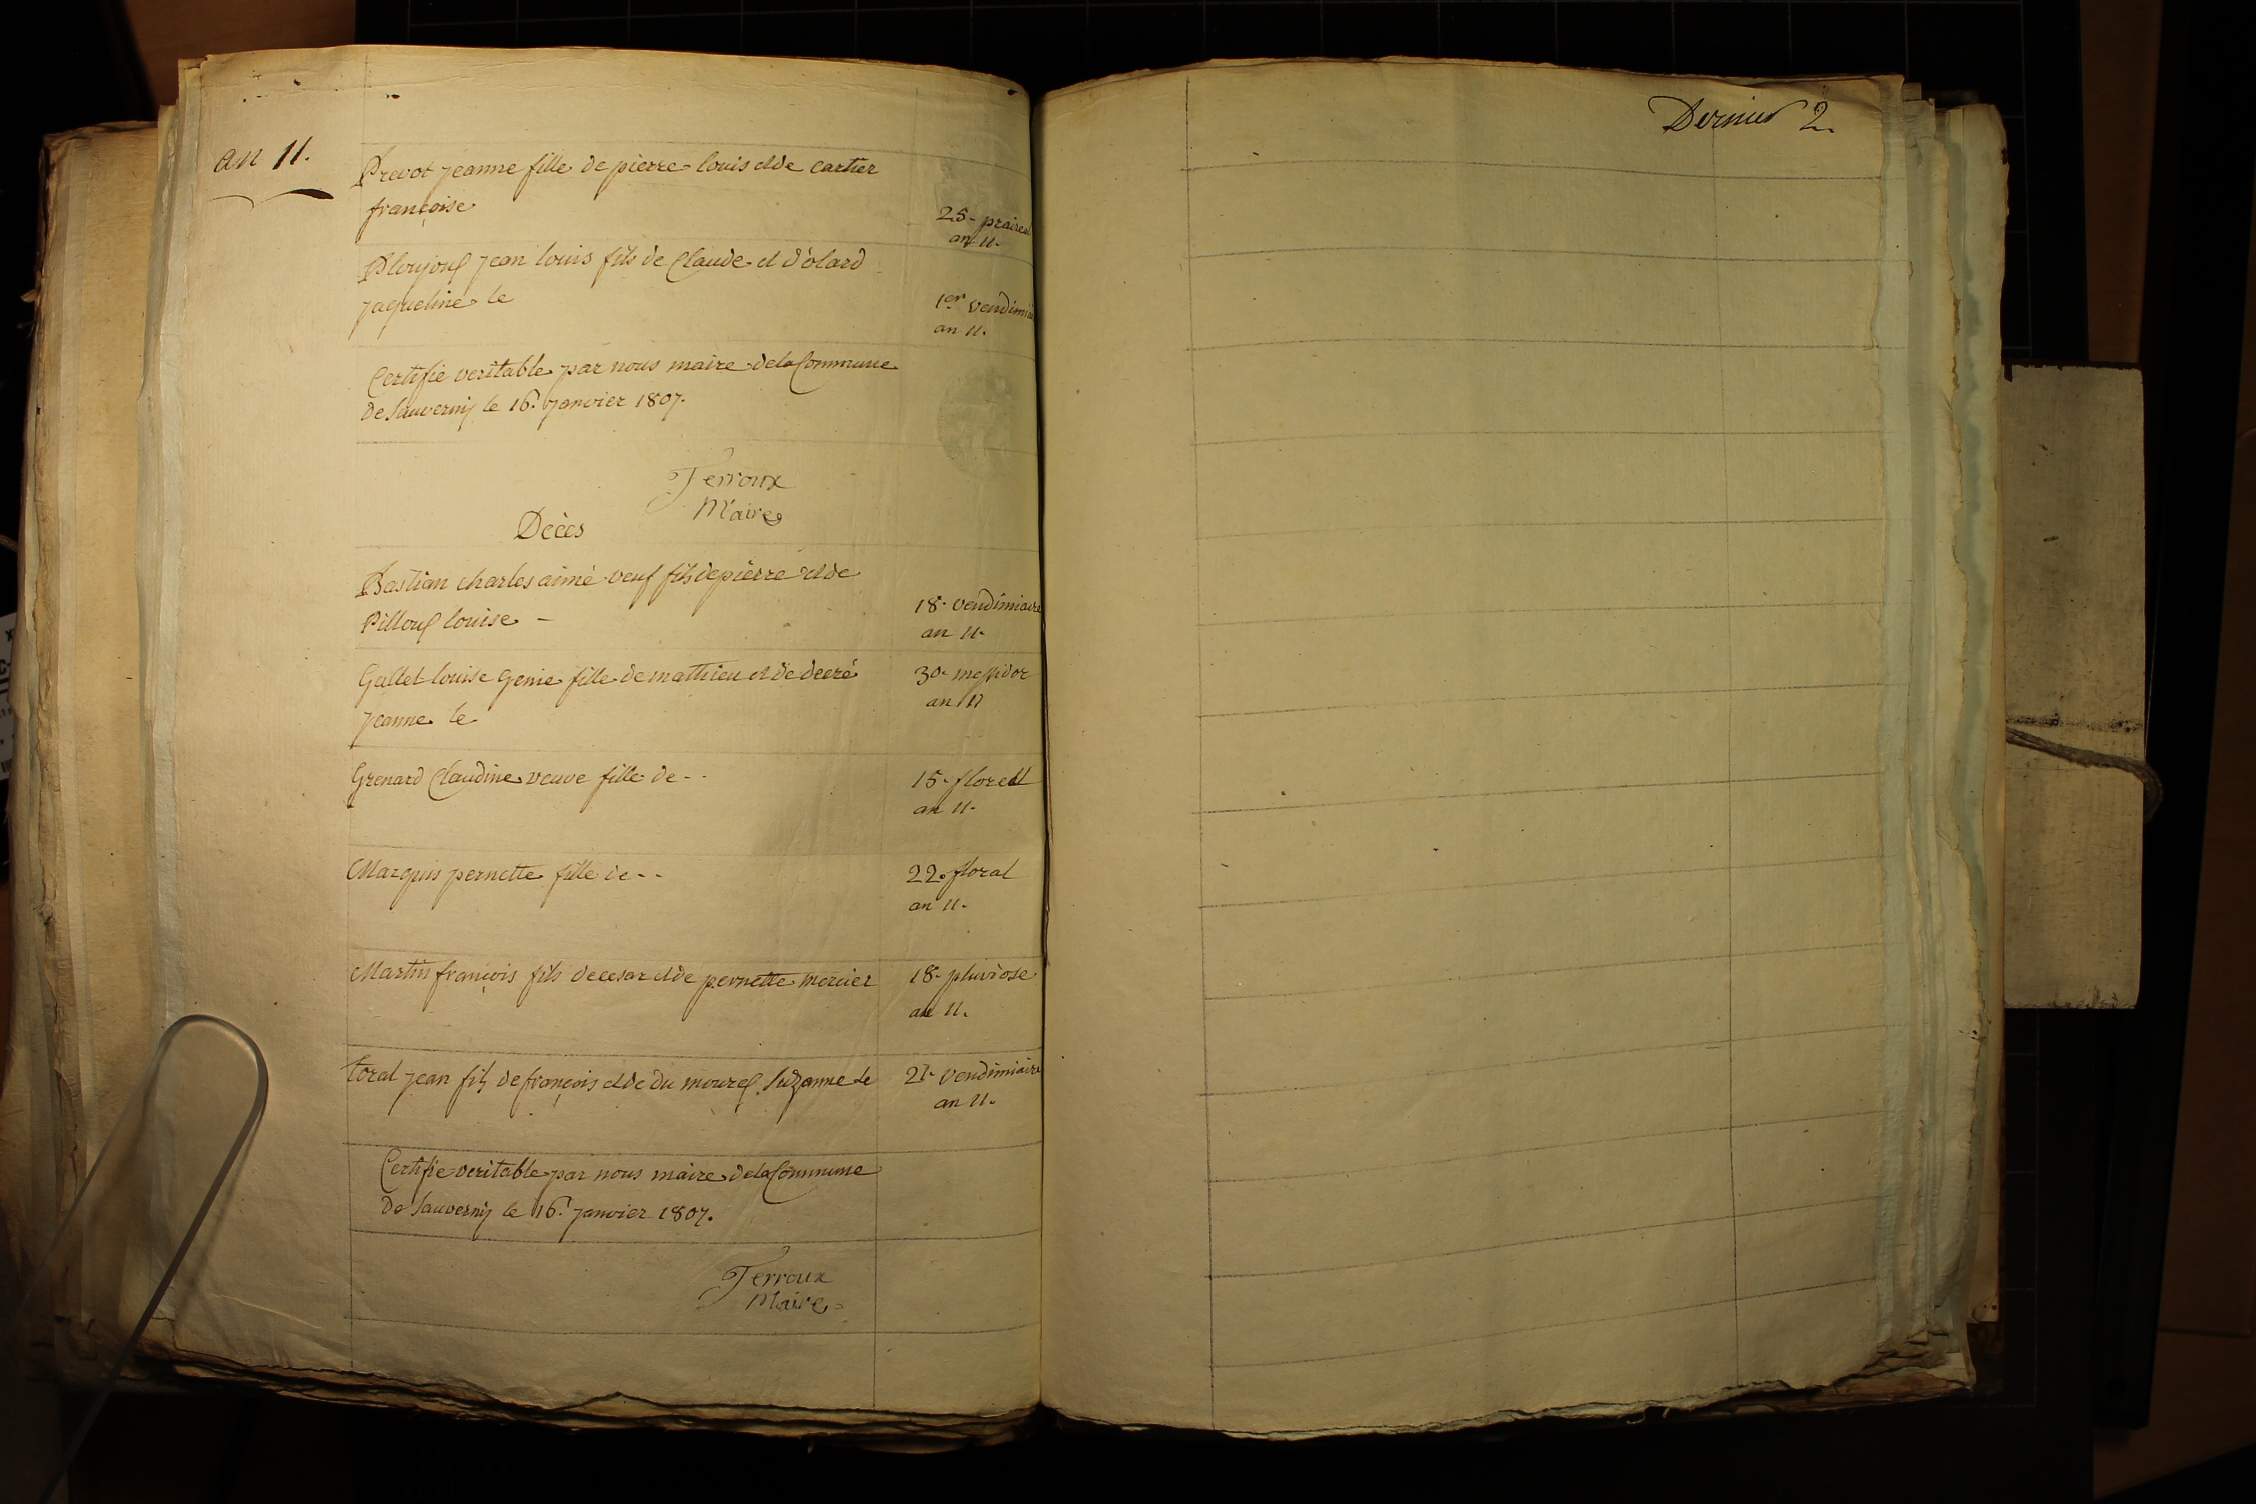 an 11.
Prevot jeanne fille de pierre louis et de cartier
françoise
25. praireal
an 11.
jean louis fils de Claude et d'olard
jaqueline le
1er vendimiai
an 11.
Certifie veritable par nous maire de la Commune
de Sauverny le 16. janvier 1807.
Terroux
Maire
Décès
Bastian charles aimé veuf fils de pierre et de
Pillouf louise -
18. vendimiaire
an 11.
Gallet louise Genie fille de mathieu et de decré
jeanne le
30. messidor
an 11
Grenard Claudine veuve fille de - -
15. floreal
an 11.
Marquis pernette fille de - -
22. floral
an 11.
Martin françois fils de cesar et de pernette mercier
18. pluviose
an 11.
toral jean fils de françois et de du mourel Suzanne le
21. vendimiaire
an 11.
Certifie veritable par nous maire de la Commune
de Sauverny le 16. janvier 1807.
Terroux
Maire
Dernier 2.